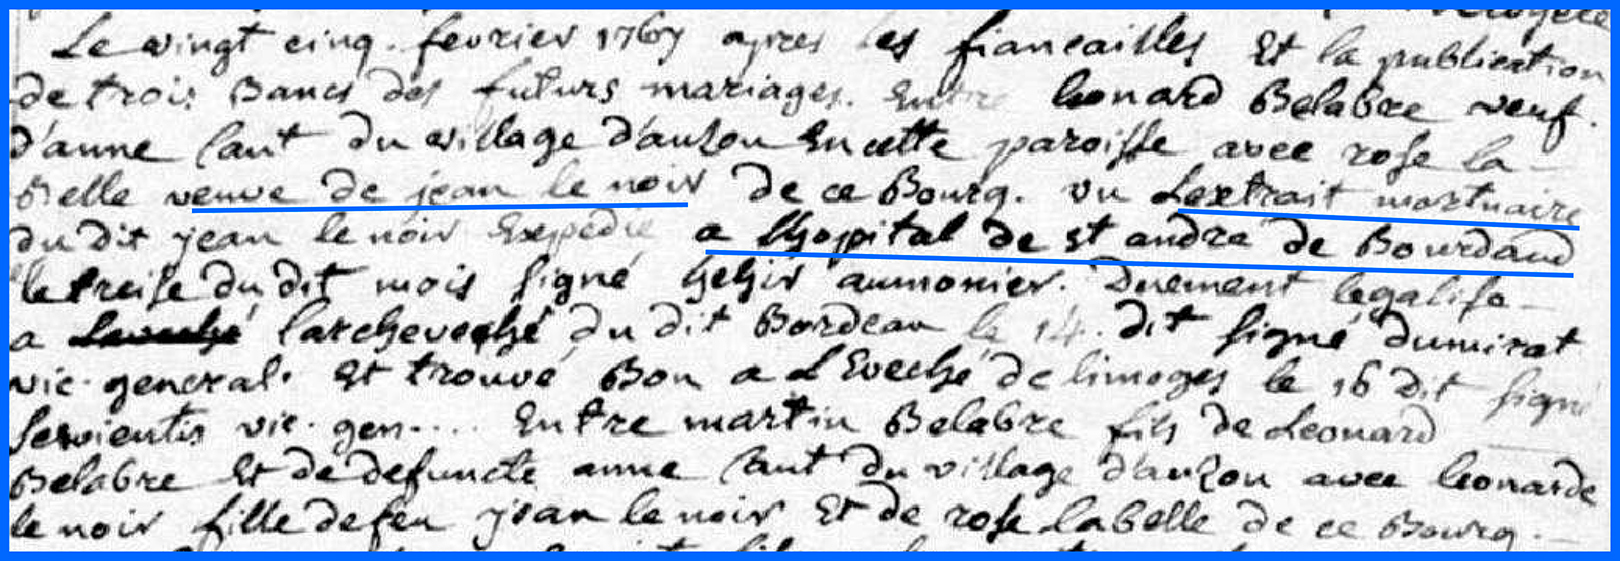 Le vingt cinq. fevrier 1767 apres les fiancailles Et la publication
de trois Bancs des futurs mariages. Entre leonard Belabre veuf.
d'anne laut du village d'auzou En cette paroisse avec rose la
Belle veuve de jean le noir de ce Bourg. vu Lextrait mortuaire
du dit jean le noir Expedié a lhopital de st andre de Bourdaud
le treise du dit mois signé aumonier. Duement legalisé
a larcheveché du dit Bordeau le 14. dit signé dumirat
vic. general. Et trouvé Bon a L'Eveché de limoges le 16 dit signé
Servientis vic. gen.... Entre martin Belabre fils de Leonard
Belabre Et de defuncte anne laut du village d'auzou avec leonarde
le noir fille de feu jean le noir Et de rose labelle de ce Bourg.